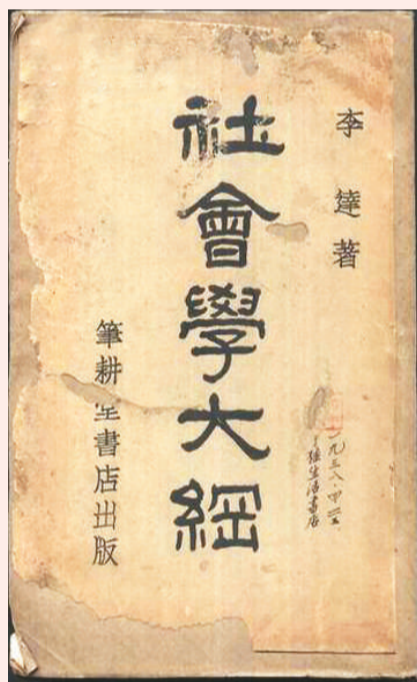 李達著
社會學大綱
筆耕堂書店出版
一九三八·
生活書店